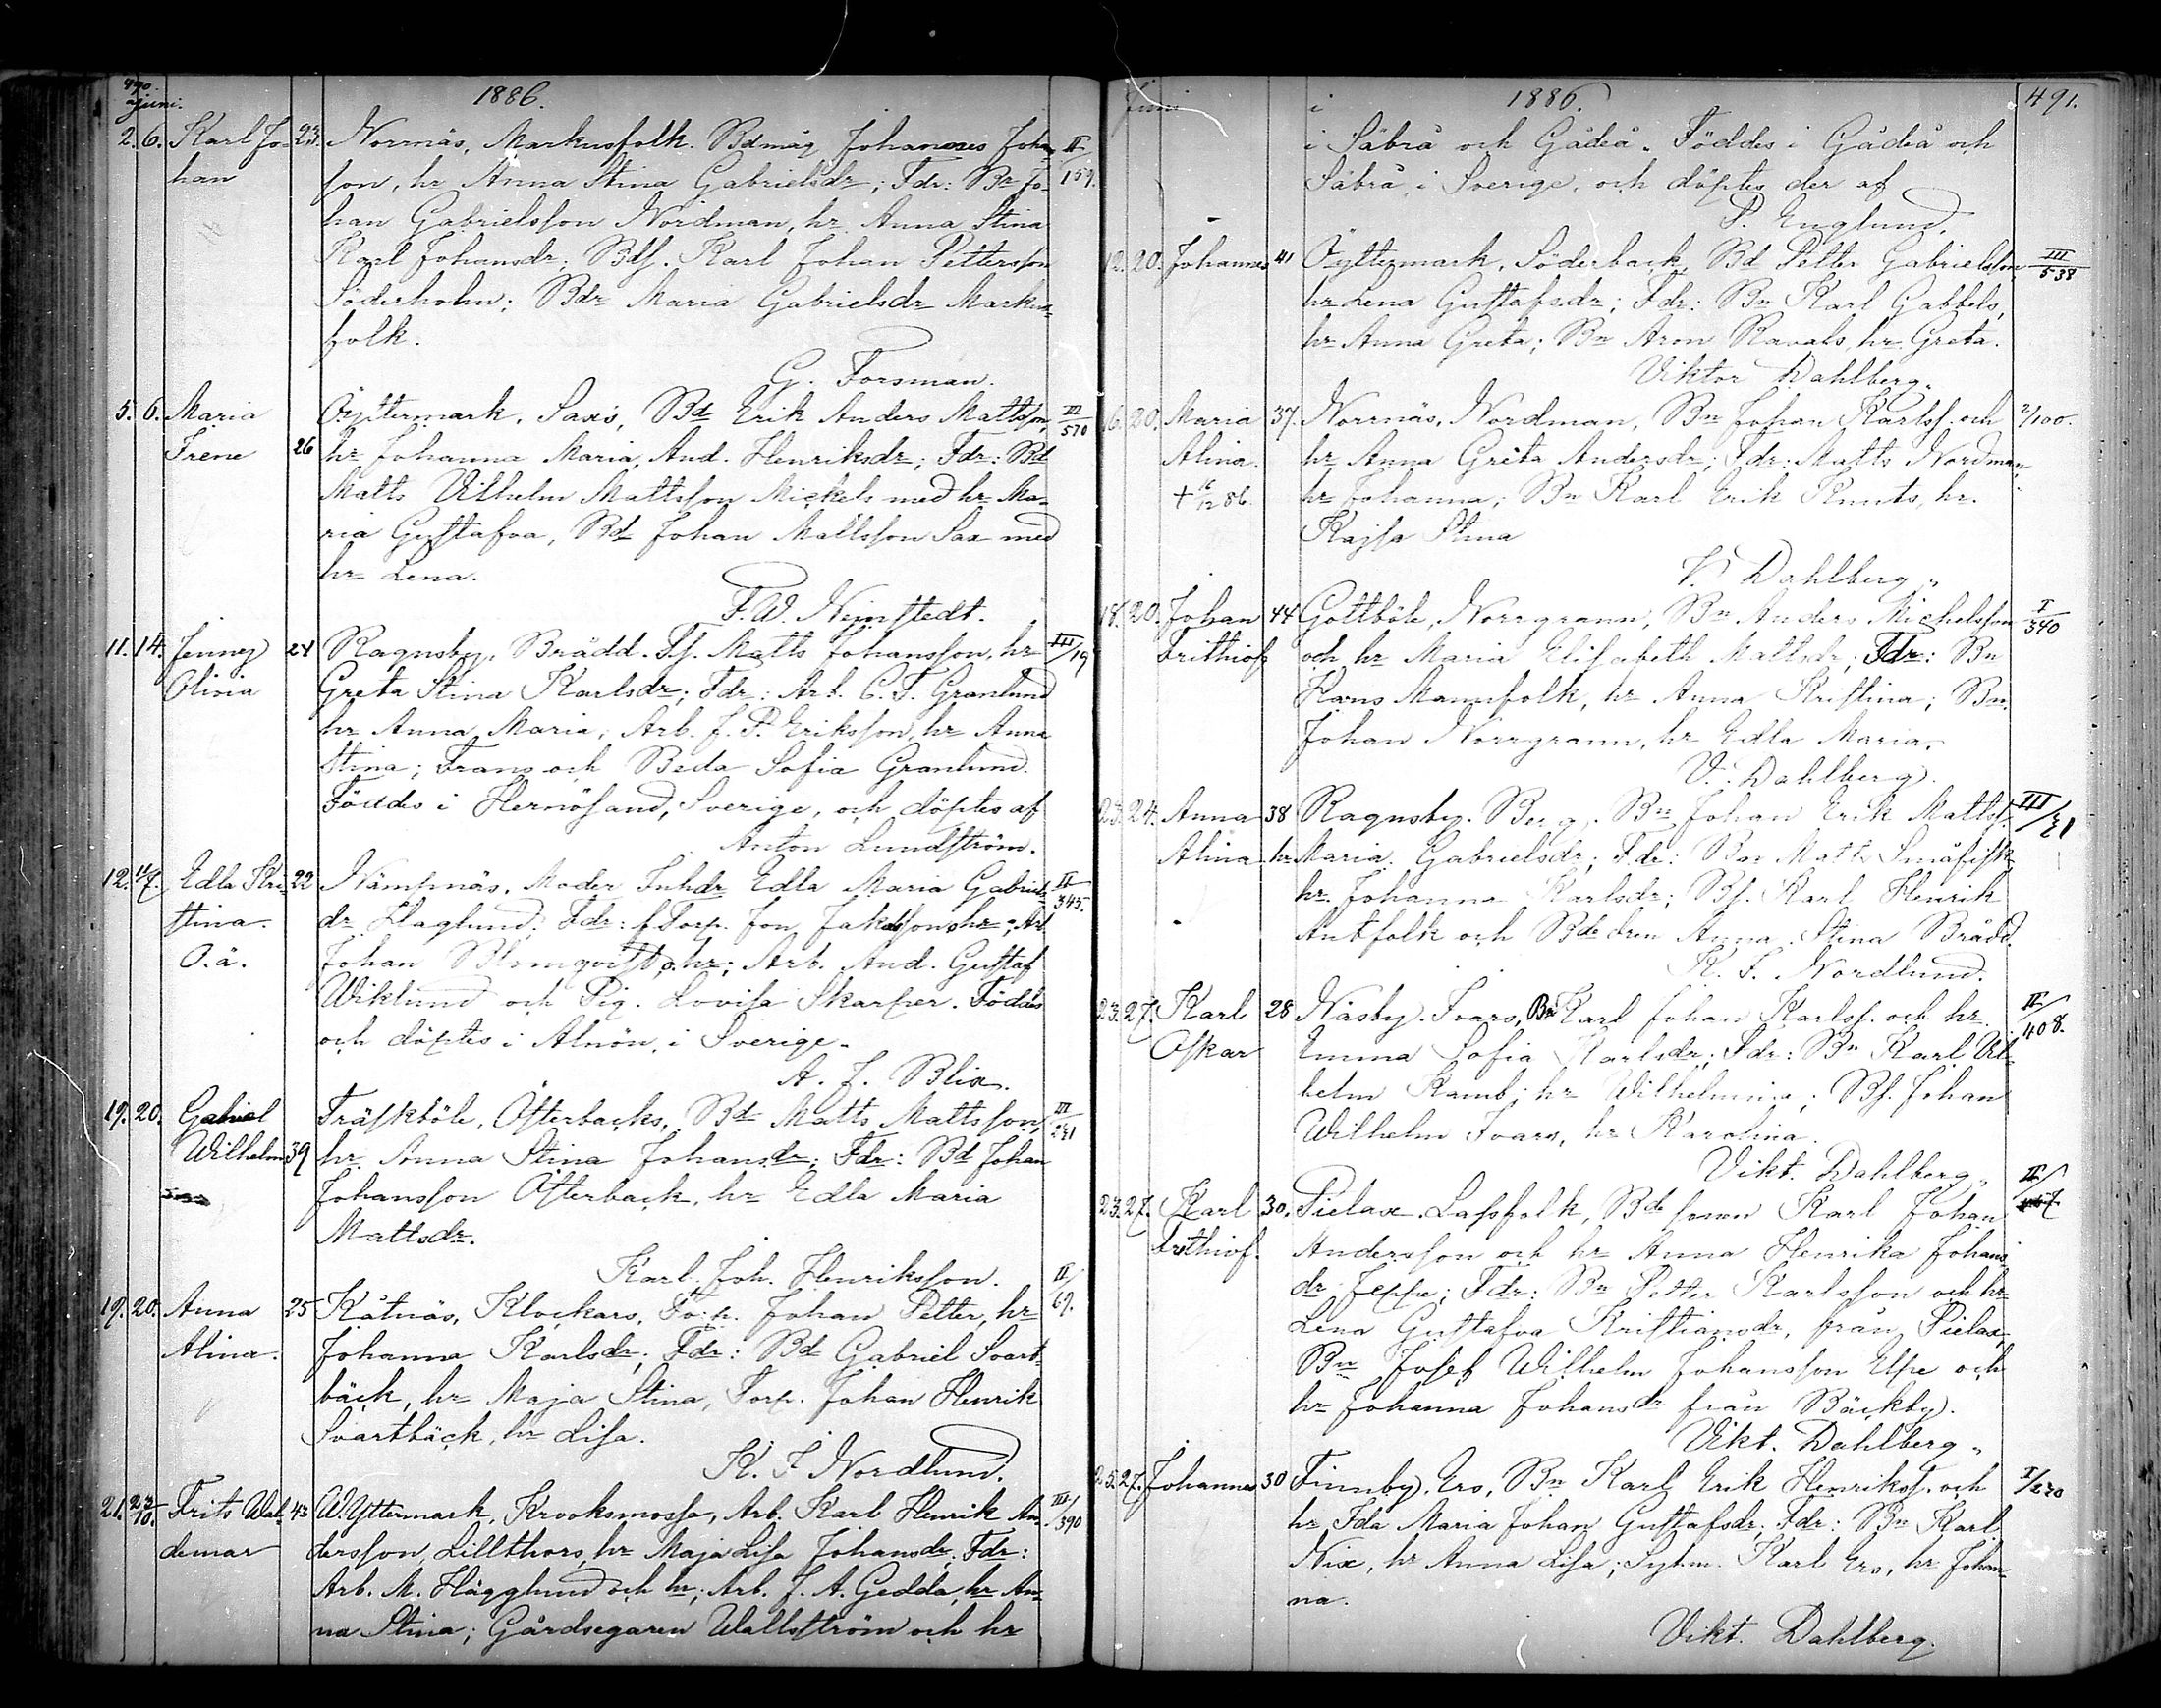 490.
Juni.
1886.
2. 6. Karl Jo- 23. Norrnäs, Markusfolk. Bdmåg Johannes Johans- II/159.
han son, hr Anna Stina Gabrielsdr; Fdr: Bn Jo-
han Gabrielsson Nordman, hr Anna Stina
Karl Johansdr; Bds. Karl Johan Pettersson
Söderholm; Bdr Maria Gabrielsdr Markus-
folk.
G. Forsman.
5. 6. Maria Öfyttermark, Saxs, Bd Erik Anders Mattsson, III/570
Irene 26 hr Johanna Maria And. Henriksdr; Fdr: Bd
Matts Vilhelm Mattsson Mickels med hr Ma-
ria Gustafva, Bd Johan Mattsson Sax med
hr Lena.
F. W. Neimstedt.
11. 14. Jenny 24 Ragnsby, Brädd. Ts. Matts Johansson, hr III/19
Olivia Greta Stina Karlsdr; Fdr: Arb. C. F. Granlund
hr Anna Maria; Arb. J. P. Eriksson, hr Anna
Stina; Frans och Beda Sofia Granlund.
Föddes i Hernösand, Sverige, och döptes af
Anton Lundström.
12. 11/7. Edla Kri- 22 Nämpnäs. Moder Inhdr Edla Maria Gabriels- II/345.
stina. dr Haglund; Fdr: f Torp. Jon Jakobsson o hr; Arb.
O.ä. Johan Blomqvist o. hr; Arb. And. Gustaf
Wiklund och Pig. Lovisa Skarper. Föddes
och döptes i Alnön, i Sverige.
A. J. Blix.
19. 20. Gabriel Träskböle, Österbacks, Bd Matts Mattsson, III/241
Wilhelm 39 hr Anna Stina Johansdr; Fdr: Bd Johan
Johansson Österback, hr Edla Maria
Mattsdr.
Karl Joh. Henriksson.
19. 20. Anna 25 Kåtnäs, Klockars, Torp. Johan Petter, hr II/69.
Alina. Johanna Karlsdr; Fdr: Bd Gabriel Svart-
bäck, hr Maja Stina, Torp. Johan Henrik
Svartbäck, hr Lisa.
K. F. Nordlund.
21. 23/10. Frits Wal- 43 W. Yttermark, Krooksmossa, Arb. Karl Henrik An- III/390
demar dersson, Lillthors, hr Maja Lisa Johansdr. Fdr:
Arb. M. Hägglund och hr; Arb. J. A. Gedda, hr An-
na Stina; Gårdsegaren Wallström och hr
Juni
i
1886.
491.
i Säbrå och Gådeå. Föddes i Gådeå och
Säbrå, i Sverige, och döptes der af
P. Englund.
12. 20. Johannes 41 Öfyttermark, Söderback, Bd Petter Gabrielsson, III/538
hr Lena Gustafsdr; Fdr: Bn Karl Gabbels,
hr Anna Greta; Bn Aron Ravals, hr Greta.
Viktor Dahlberg.
16. 20. Maria 37. Norrnäs, Nordman, Bn Johan Karlss. och 2/100.
Alina. hr Anna Greta Andersdr; Fdr: Matts Nordman,
+ 16/12 86. hr Johanna; Bn Karl Erik Knuts, hr
Kajsa Stina
V. Dahlberg.
18. 20. Johan 44 Gottböle, Norrgrann, Bn Anders Michelsson I/340
Frithiof och hr Maria Elisabeth Mattsdr; Fdr: Bn
Hans Mannfolk, hr Anna Kristina; Bn
Johan Norrgrann, hr Edla Maria.
V. Dahlberg.
23. 24. Anna 38 Ragnsby. Berg, Bn Johan Erik Mattss. III/21
Alina hr Maria Gabrielsdr; Fdr: Bn Matts Småfisk
hr. Johanna Karlsdr; Bs. Karl Henrik
Antfolk och Bddren Anna Stina Brädd.
K. F. Nordlund.
23. 27. Karl 28 Näsby. Ivars, Bn Karl Johan Karlss. och hr II/408.
Oskar Emma Sofia Karlsdr; Fdr: Bn Karl Vil-
helm Ramb, hr Wilhelmina; Bs. Johan
Wilhelm Ivars, hr Karolina.
Vikt. Dahlberg.
23. 27. Karl 30. Pielax. Lassfolk, Bdsonen Karl Johan II/
Frithiof. Andersson och hr Anna Henrika Johans-
dr Jeppe; Fdr: Bn Petter Karlsson och hr
Lena Gustafva Kristiansdr, från Pielax,
Bn Josef Wilhelm Johansson Elpe och
hr Johanna Johansdr från Bäckby.
Vikt. Dahlberg.
25. 27. Johannes 30 Finnby. Ers, Bn Karl Erik Henrikss. och I/220
hr Ida Maria Johan Gustafsdr. Fdr: Bn Karl
Nix, hr Anna Lisa; Sytm. Karl Ers, hr Johan-
na.
Vikt. Dahlberg.